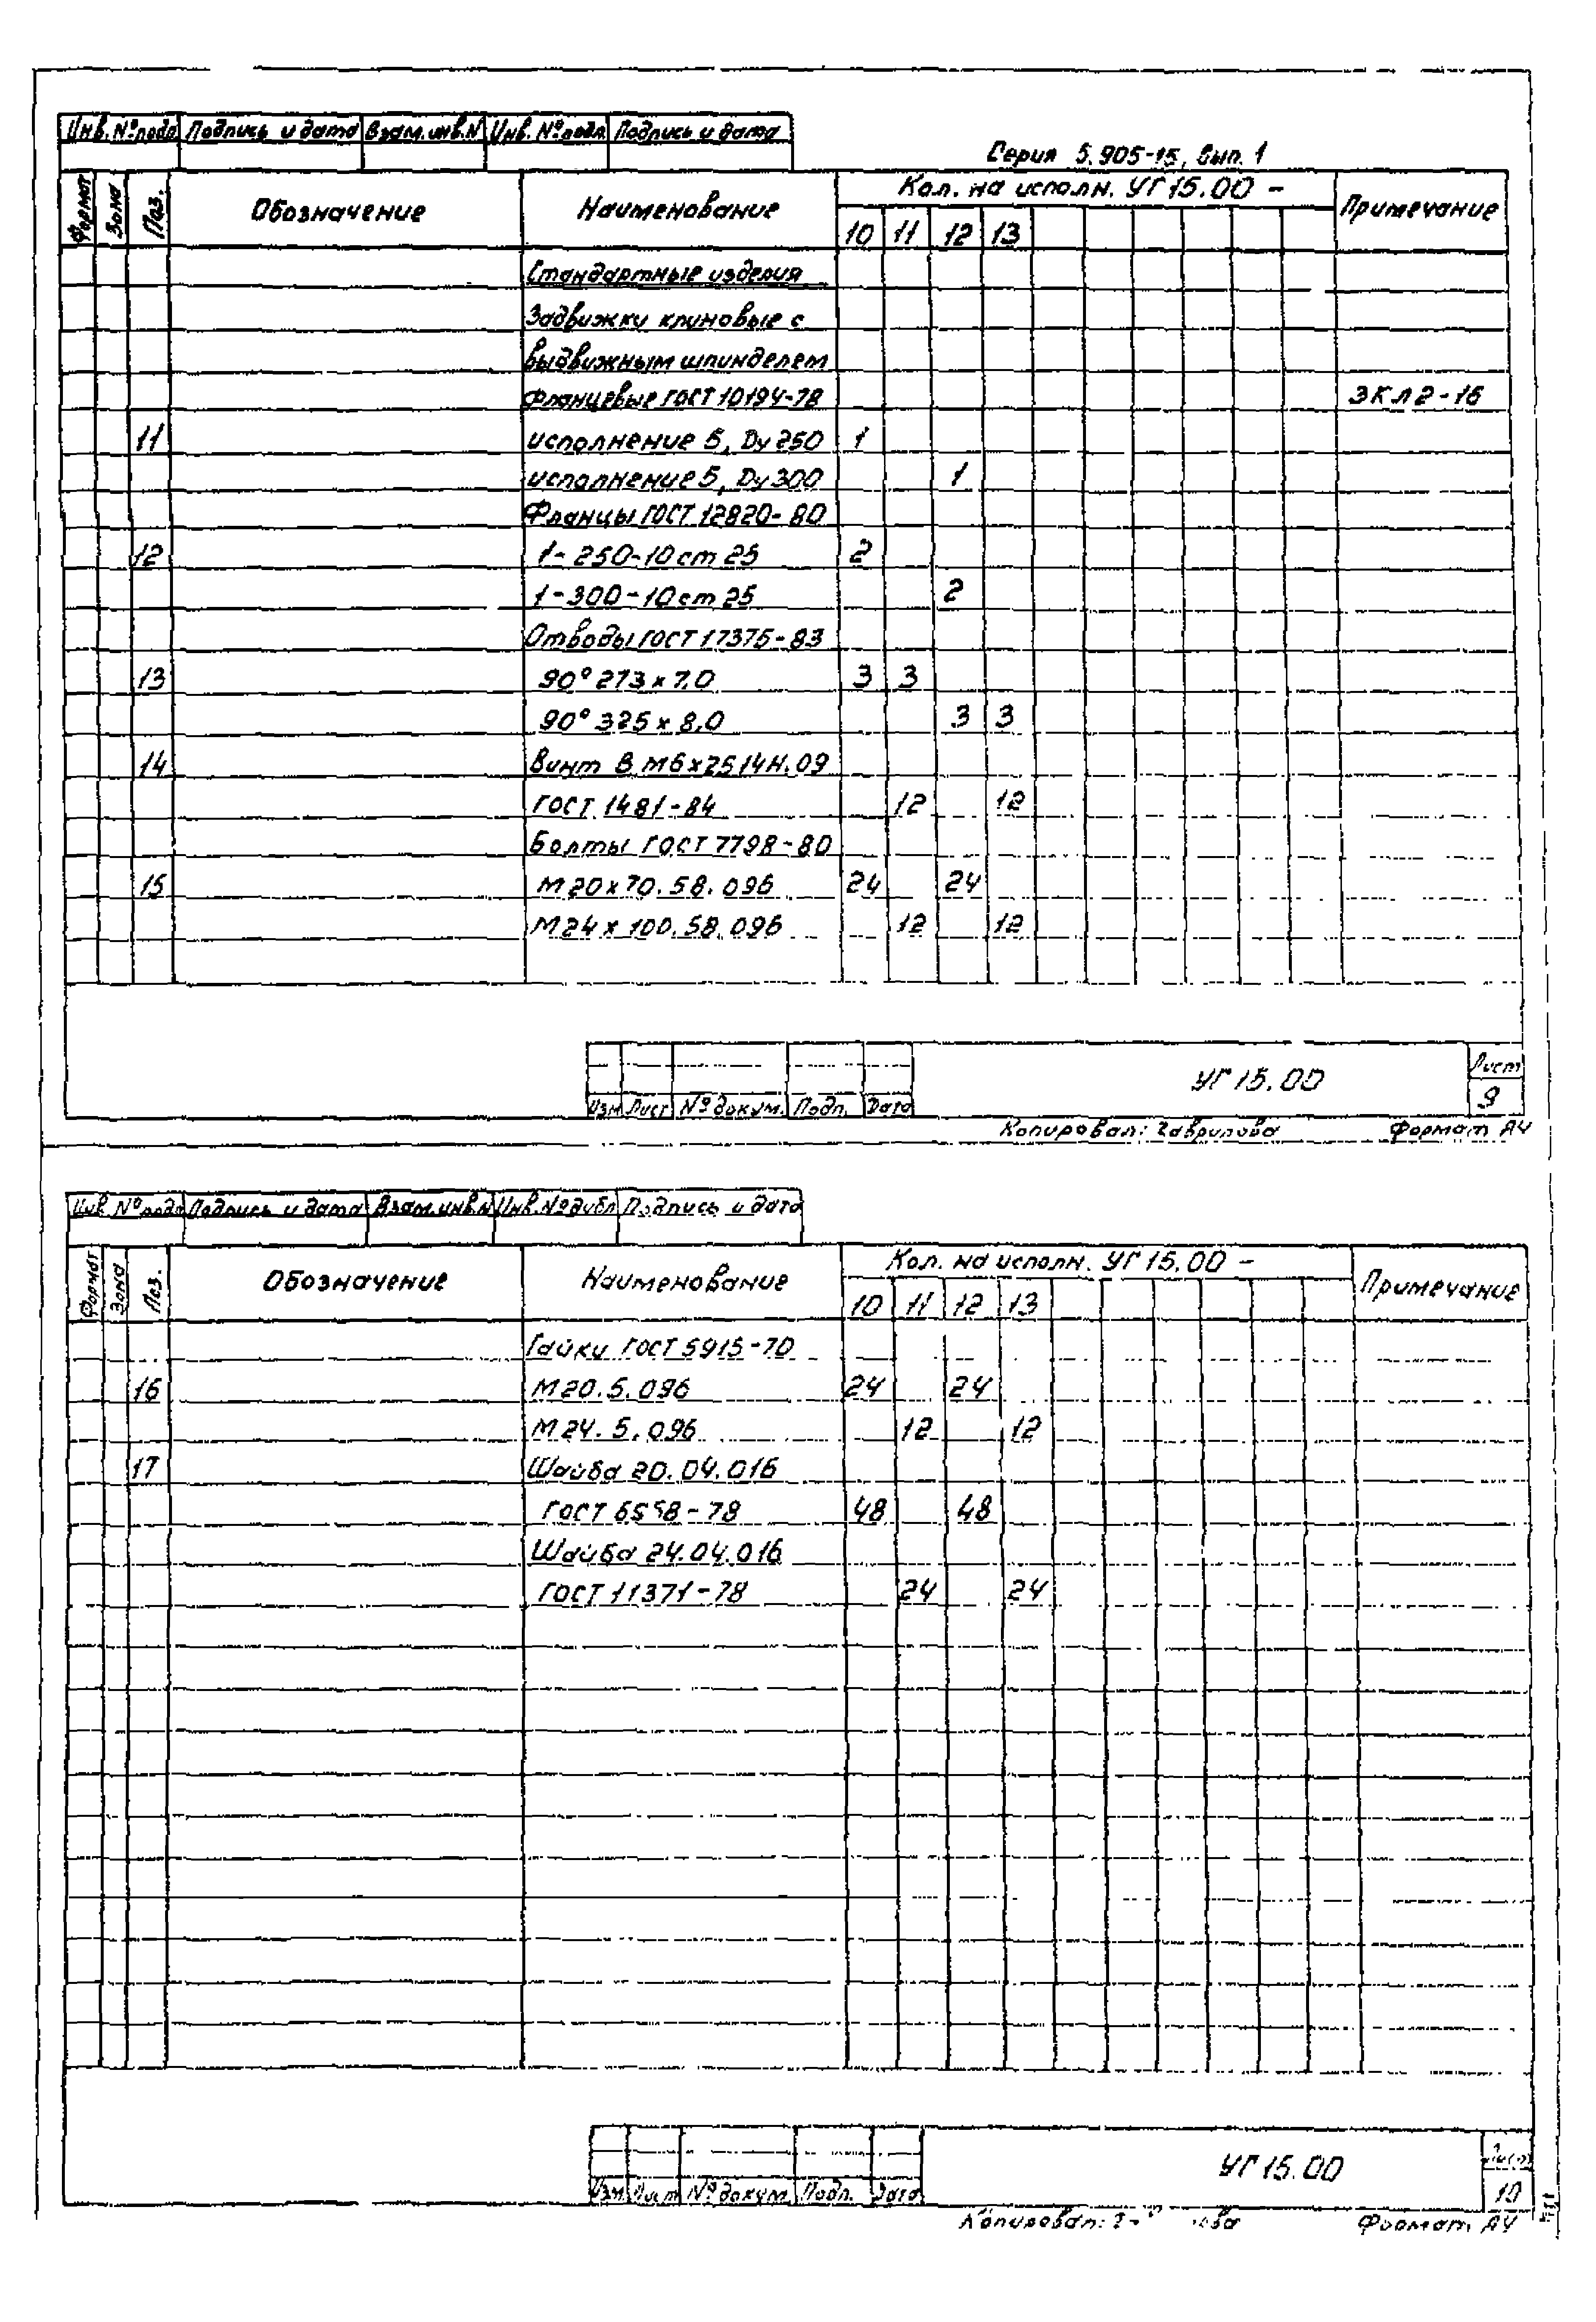 Инв. № подл Подпись и дата Взам. инв. N Инв. № подл Подпись и дата
Серия 5.905-15, вып. 1
Формат Зона Поз. Обозначение Наименование Кол. на исполн. УГ 15.00 - Примечание
10 11 12 13
Стандартные изделия
Задвижки клиновые с
выдвижным шпинделем
фланцевые ГОСТ 10194-78 ЗКЛ2-16
11 исполнение 5, Dу 250 1
исполнение 5, Dу 300 1
Фланцы ГОСТ 12820-80
12 1-250-10 ст 25 2
1-300-10 ст 25 2
Отводы ГОСТ 17375-83
13 90° 273 х 7,0 3 3
90° 325 х 8,0 3 3
14 Винт В М6х25 14Н. 09
ГОСТ 1481-84 12 12
Болты ГОСТ 7798-80
15 М20х70. 58. 096 24 24
М24 х 100. 58. 096 12 12
УГ 15.00 Лист
9
Изм Лист № докум. Подп. Дата
Копировал: Гаврилова Формат А4
Инв. № подл Подпись и дата Взам. инв. N Инв. № дубл Подпись и дата
Формат Зона Поз. Обозначение Наименование Кол. на исполн. УГ 15.00 - Примечание
10 11 12 13
Гайки ГОСТ 5915-70
16 М20. 5. 096 24 24
М24. 5. 096 12 12
17 Шайба 20. 04. 016
ГОСТ 78 48 48
Шайба 24. 04. 016
ГОСТ 11371-78 24 24
УГ 15.00 Лист
10
Изм Лист № докум. Подп. Дата
Копировал: Формат А4